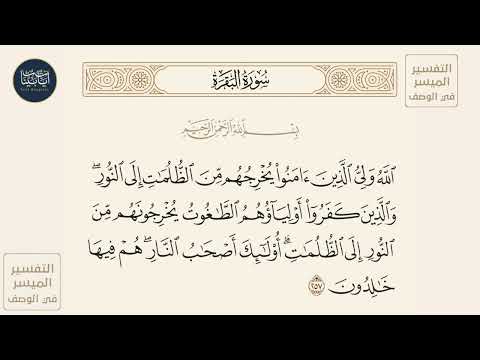 آيات بينات
سُورَةُ البَقَرَةِ
التفسير
الميسر
في الوصف
بِسْمِ اللَّهِ الرَّحْمَٰنِ الرَّحِيمِ
ٱللَّهُ وَلِيُّ ٱلَّذِينَ ءَامَنُوا۟ يُخْرِجُهُم مِّنَ ٱلظُّلُمَٰتِ إِلَى ٱلنُّورِ ۖ
وَٱلَّذِينَ كَفَرُوٓا۟ أَوْلِيَآؤُهُمُ ٱلطَّٰغُوتُ يُخْرِجُونَهُم مِّنَ
ٱلنُّورِ إِلَى ٱلظُّلُمَٰتِ ۗ أُو۟لَٰٓئِكَ أَصْحَٰبُ ٱلنَّارِ ۖ هُمْ فِيهَا
خَٰلِدُونَ ٢٥٧
التفسير
الميسر
في الوصف